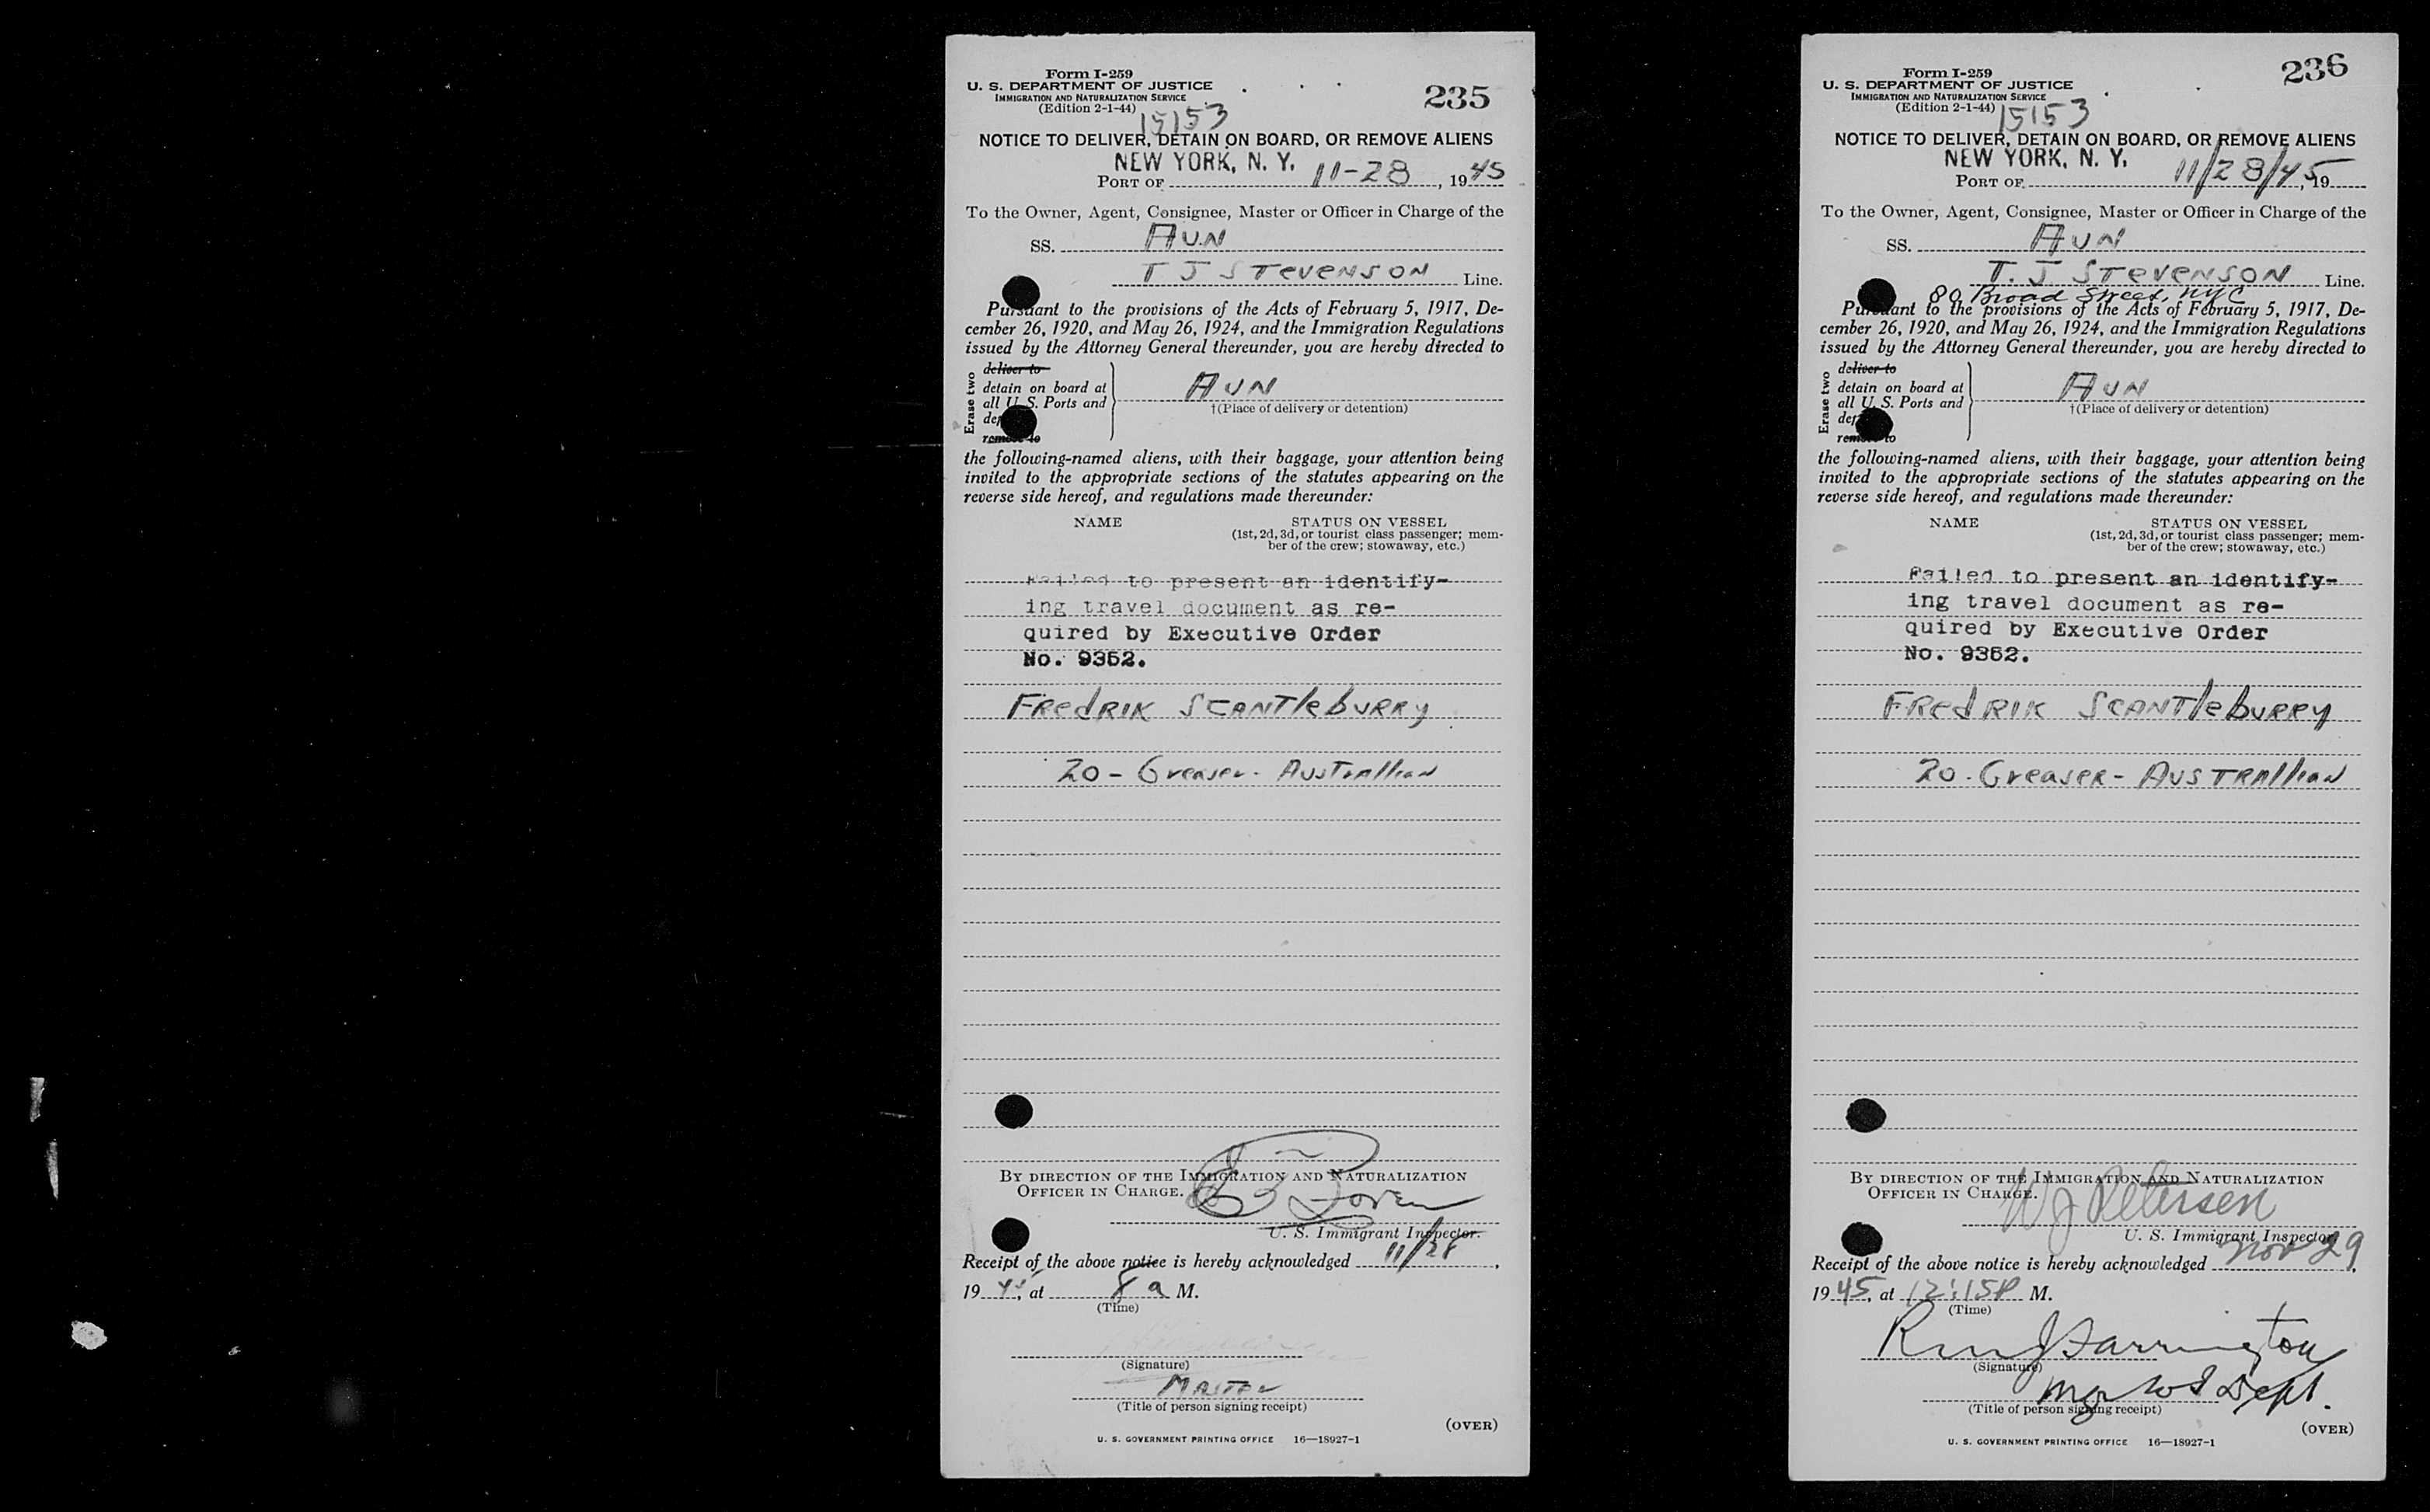 Form I-259
U. S. DEPARTMENT OF JUSTICE
IMMIGRATION AND NATURALIZATION SERVICE
(Edition 2-1-44)
235
15153
NOTICE TO DELIVER, DETAIN ON BOARD, OR REMOVE ALIENS
NEW YORK, N. Y.
PORT OF 11-28, 1945
To the Owner, Agent, Consignee, Master or Officer in Charge of the
SS. AUN
T J STevenSON Line.
Pursuant to the provisions of the Acts of February 5, 1917, De-
cember 26, 1920, and May 26, 1924, and the Immigration Regulations
issued by the Attorney General thereunder, you are hereby directed to
Erase two
deliver to
detain on board at
all U. S. Ports and
remove to
AUN
†(Place of delivery or detention)
the following-named aliens, with their baggage, your attention being
invited to the appropriate sections of the statutes appearing on the
reverse side hereof, and regulations made thereunder:
NAME STATUS ON VESSEL
(1st, 2d, 3d, or tourist class passenger; mem-
ber of the crew; stowaway, etc.)
Failed to present an identify-
ing travel document as re-
quired by Executive Order
No. 9352.
FRedRIK SCANTleburRy
20 - Greaser - AusTrallian
BY DIRECTION OF THE IMMIGRATION AND NATURALIZATION
OFFICER IN CHARGE.
U. S. Immigrant Inspector.
Receipt of the above notice is hereby acknowledged 11/28,
1945, at 8 a M.
(Time)
(Signature)
Master
(Title of person signing receipt)
(OVER)
U. S. GOVERNMENT PRINTING OFFICE 16—18927-1
Form I-259
U. S. DEPARTMENT OF JUSTICE
IMMIGRATION AND NATURALIZATION SERVICE
(Edition 2-1-44)
236
15153
NOTICE TO DELIVER, DETAIN ON BOARD, OR REMOVE ALIENS
NEW YORK, N. Y.
PORT OF 11/28/45, 19
To the Owner, Agent, Consignee, Master or Officer in Charge of the
SS. AUN
T. J STevenSON Line.
80 Broad Street, NYC
Pursuant to the provisions of the Acts of February 5, 1917, De-
cember 26, 1920, and May 26, 1924, and the Immigration Regulations
issued by the Attorney General thereunder, you are hereby directed to
Erase two
deliver to
detain on board at
all U. S. Ports and
remove to
AUN
†(Place of delivery or detention)
the following-named aliens, with their baggage, your attention being
invited to the appropriate sections of the statutes appearing on the
reverse side hereof, and regulations made thereunder:
NAME STATUS ON VESSEL
(1st, 2d, 3d, or tourist class passenger; mem-
ber of the crew; stowaway, etc.)
Failed to present an identify-
ing travel document as re-
quired by Executive Order
No. 9352.
FRedRIK SCANTlebuRRy
20 - Greaser - AUSTRAllian
BY DIRECTION OF THE IMMIGRATION AND NATURALIZATION
OFFICER IN CHARGE.
W J Petersen
U. S. Immigrant Inspector
Receipt of the above notice is hereby acknowledged Nov 29,
1945, at 12:15P M.
(Time)
Harrington
(Signature)
Mgr Dept.
(Title of person signing receipt)
(OVER)
U. S. GOVERNMENT PRINTING OFFICE 16—18927-1